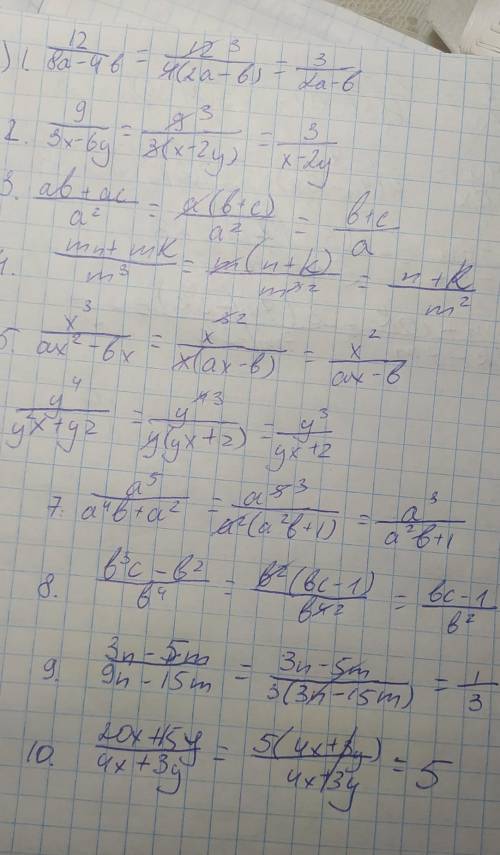 ) 1. 12/(8a-4b) = 12 3/(4(2a-b)) = 3/(2a-b)
2. 9/(3x-6y) = 9 3/(3(x-2y)) = 3/(x-2y)
3. (ab+ac)/a² = a(b+c)/a² = (b+c)/a
4. (mn+mk)/m³ = m(n+k)/m³ ² = (n+k)/m²
5. x³/(ax²-bx) = x³ ²/(x(ax-b)) = x²/(ax-b)
y⁴/(y²x+y2) = y⁴ ³/(y(yx+2)) = y³/(yx+2)
7. a⁵/(a⁴b+a²) = a⁵ ³/(a²(a²b+1)) = a³/(a²b+1)
8. (b³c-b²)/b⁴ = b²(bc-1)/b⁴ ² = (bc-1)/b²
9. (3n-5m)/(9n-15m) = (3n-5m)/(3(3n-15m)) = 1/3
10. (20x+15y)/(4x+3y) = 5(4x+3y)/(4x+3y) = 5